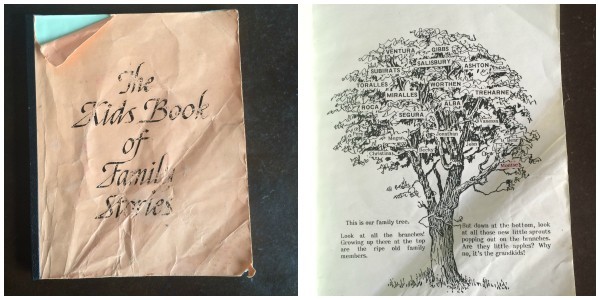 The
Kids Book
of
Family
Stories
VENTURA GIBBS
SALISBURY
SUBIRATS ASHTON
TORALLES WORTHEN
MIRALLES TREHARNE
ROCA ALBA
SEGURA Vanessa
Jonathan
Megan
Christina
This is our family tree.
Look at all the branches!
Growing up there at the top
are the ripe old family
members.
But down at the bottom, look
at all those new little sprouts
popping out on the branches.
Are they little apples? Why
no, it's the grandkids!